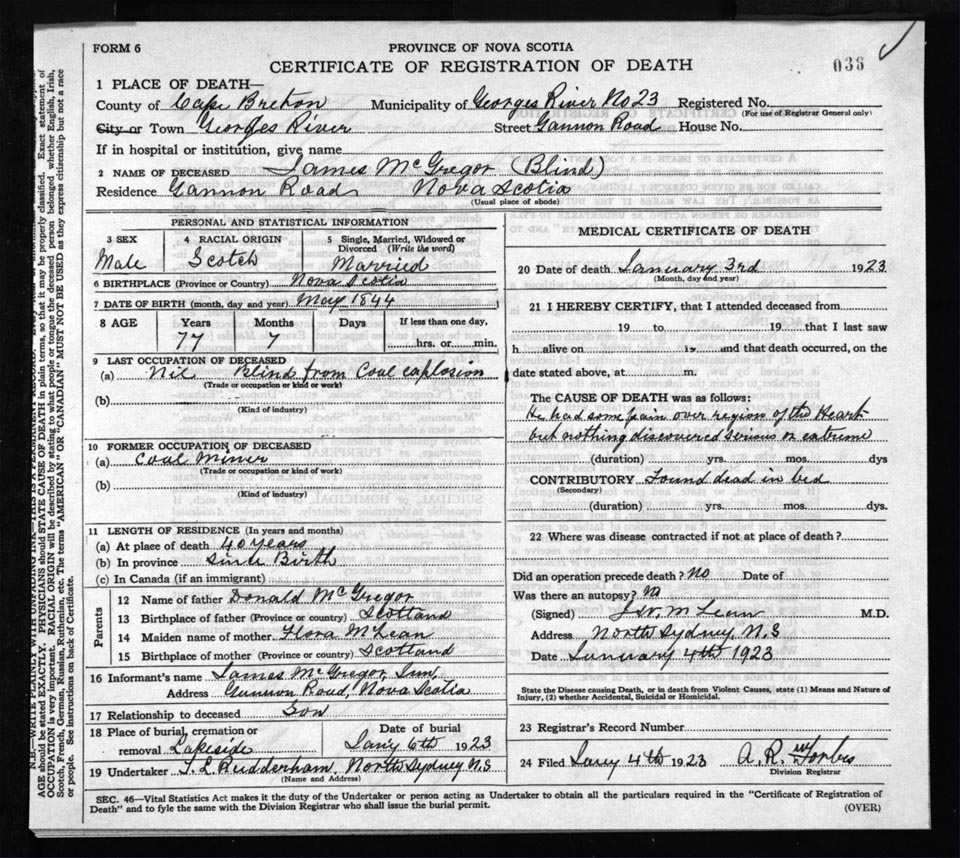 FORM 6
PROVINCE OF NOVA SCOTIA
CERTIFICATE OF REGISTRATION OF DEATH
036
1 PLACE OF DEATH—
County of Cape Breton Municipality of Georges River No 23 Registered No.
(For use of Registrar General only)
City or Town Georges River Street Gannon Road House No.
If in hospital or institution, give name
2 NAME OF DECEASED James McGregor (Blind)
Residence Gannon Road Nova Scotia
(Usual place of abode)
PERSONAL AND STATISTICAL INFORMATION
3 SEX
Male
4 RACIAL ORIGIN
Scotch
5 Single, Married, Widowed or
Divorced (Write the word)
Married
6 BIRTHPLACE (Province or Country) Nova Scotia
7 DATE OF BIRTH (month, day and year) May 1844
8 AGE
Years
77
Months
7
Days
If less than one day,
hrs. or min.
9 LAST OCCUPATION OF DECEASED
(a) Nil Blind from Coal explosion
(Trade or occupation or kind or work)
(b)
(Kind of industry)
10 FORMER OCCUPATION OF DECEASED
(a) Coal Miner
(Trade or occupation or kind of work)
(b)
(Kind of industry)
11 LENGTH OF RESIDENCE (In years and months)
(a) At place of death 40 years
(b) In province Since Birth
(c) In Canada (if an immigrant)
Parents
12 Name of father Donald McGregor
13 Birthplace of father (Province or country) Scotland
14 Maiden name of mother Flora McLean
15 Birthplace of mother (Province or country) Scotland
16 Informant's name James McGregor, Jun,
Address Gannon Road, Nova Scotia
17 Relationship to deceased Son
18 Place of burial, cremation or
removal Lakeside
Date of burial
Jany 6th 1923
19 Undertaker J. L. Rudderham, North Sydney N.S
(Name and Address)
MEDICAL CERTIFICATE OF DEATH
20 Date of death January 3rd 1923
(Month, day and year)
21 I HEREBY CERTIFY, that I attended deceased from
19 to 19 that I last saw
h alive on 19 and that death occurred, on the
date stated above, at m.
The CAUSE OF DEATH was as follows:
He had some pain over region of the Heart
but nothing discovered serious or extreme
(duration) yrs. mos. dys
CONTRIBUTORY Found dead in bed
(Secondary)
(duration) yrs. mos. dys
22 Where was disease contracted if not at place of death?
Did an operation precede death? No Date of
Was there an autopsy? No
(Signed) M Lean M.D.
Address North Sydney, N.S
Date January 4th 1923
State the Disease causing Death, or in death from Violent Causes, state (1) Means and Nature of
Injury, (2) whether Accidental, Suicidal or Homicidal.
23 Registrar's Record Number
24 Filed Jany 4th 1923 A. R. Forbes
Division Registrar
SEC. 46—Vital Statistics Act makes it the duty of the Undertaker or person acting as Undertaker to obtain all the particulars required in the "Certificate of Registration of
Death" and to fyle the same with the Division Registrar who shall issue the burial permit.
(OVER)
N.B.—WRITE PLAINLY WITH UNFADING INK—THIS IS A PERMANENT RECORD.
AGE should be stated EXACTLY. PHYSICIANS should STATE CAUSE OF DEATH in plain terms, so that it may be properly classified. Exact statement of
OCCUPATION is very important. RACIAL ORIGIN will be described by stating to what people or tongue the deceased person belonged whether English, Irish,
Scotch, French, German, Russian, Ruthenian, etc. The terms "AMERICAN" OR "CANADIAN" MUST NOT BE USED as they express citizenship but not a race
or people. See instructions on back of Certificate.